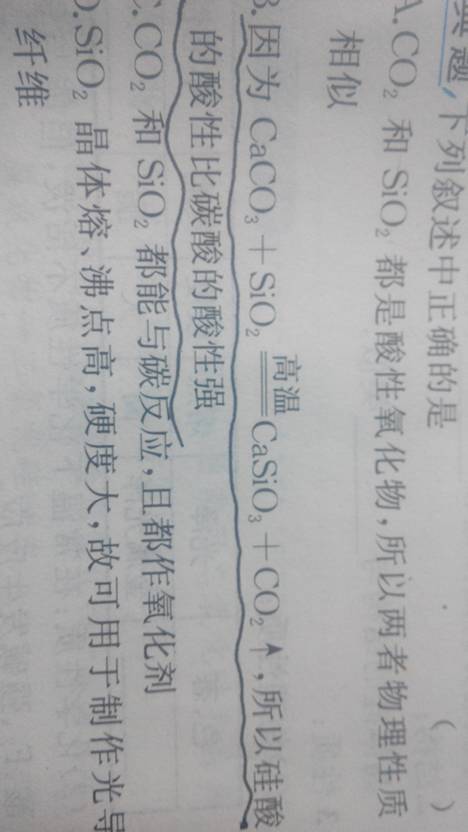 类题,下列叙述中正确的是 ( )
A.CO₂ 和 SiO₂ 都是酸性氧化物,所以两者物理性质
相似
B.因为 CaCO₃+SiO₂ 高温══ CaSiO₃+CO₂↑,所以硅酸
的酸性比碳酸的酸性强
C.CO₂ 和 SiO₂ 都能与碳反应,且都作氧化剂
D.SiO₂ 晶体熔、沸点高,硬度大,故可用于制作光导
纤维